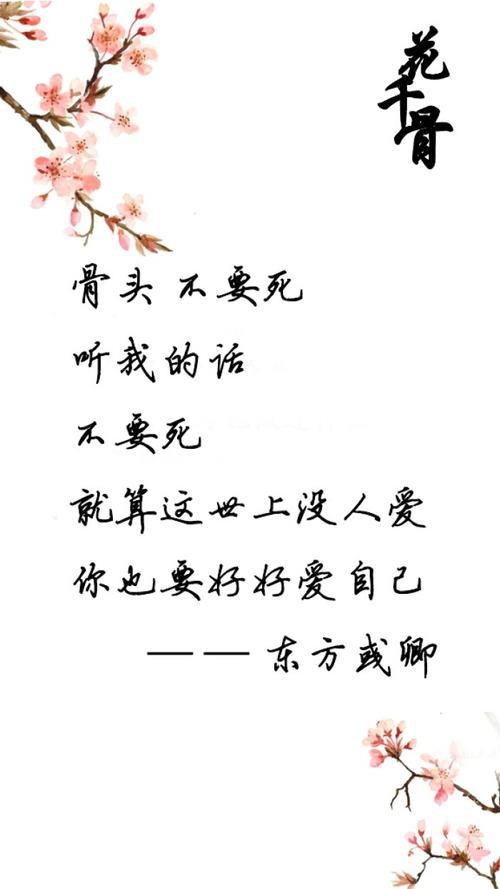 花千骨
骨头 不要死
听我的话
不要死
就算这世上没人爱
你也要好好爱自己
——东方彧卿